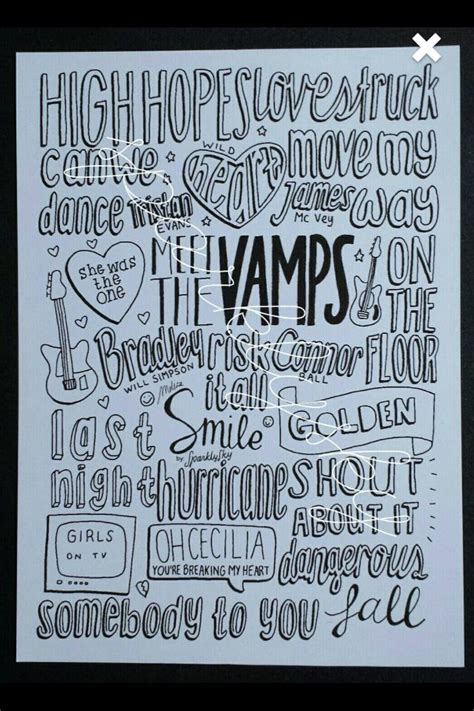 HIGH HOPES lovestruck
can we WILD heart move my
dance Tristan EVANS James MC VEY way
she was the one MEET THE VAMPS ON THE FLOOR
Bradley WILL SIMPSON risk it all Connor BALL
last night Smile by SparklySky GOLDEN
hurricane SHOUT ABOUT IT
GIRLS ON TV OH CECILIA YOU'RE BREAKING MY HEART dangerous
somebody to you fall